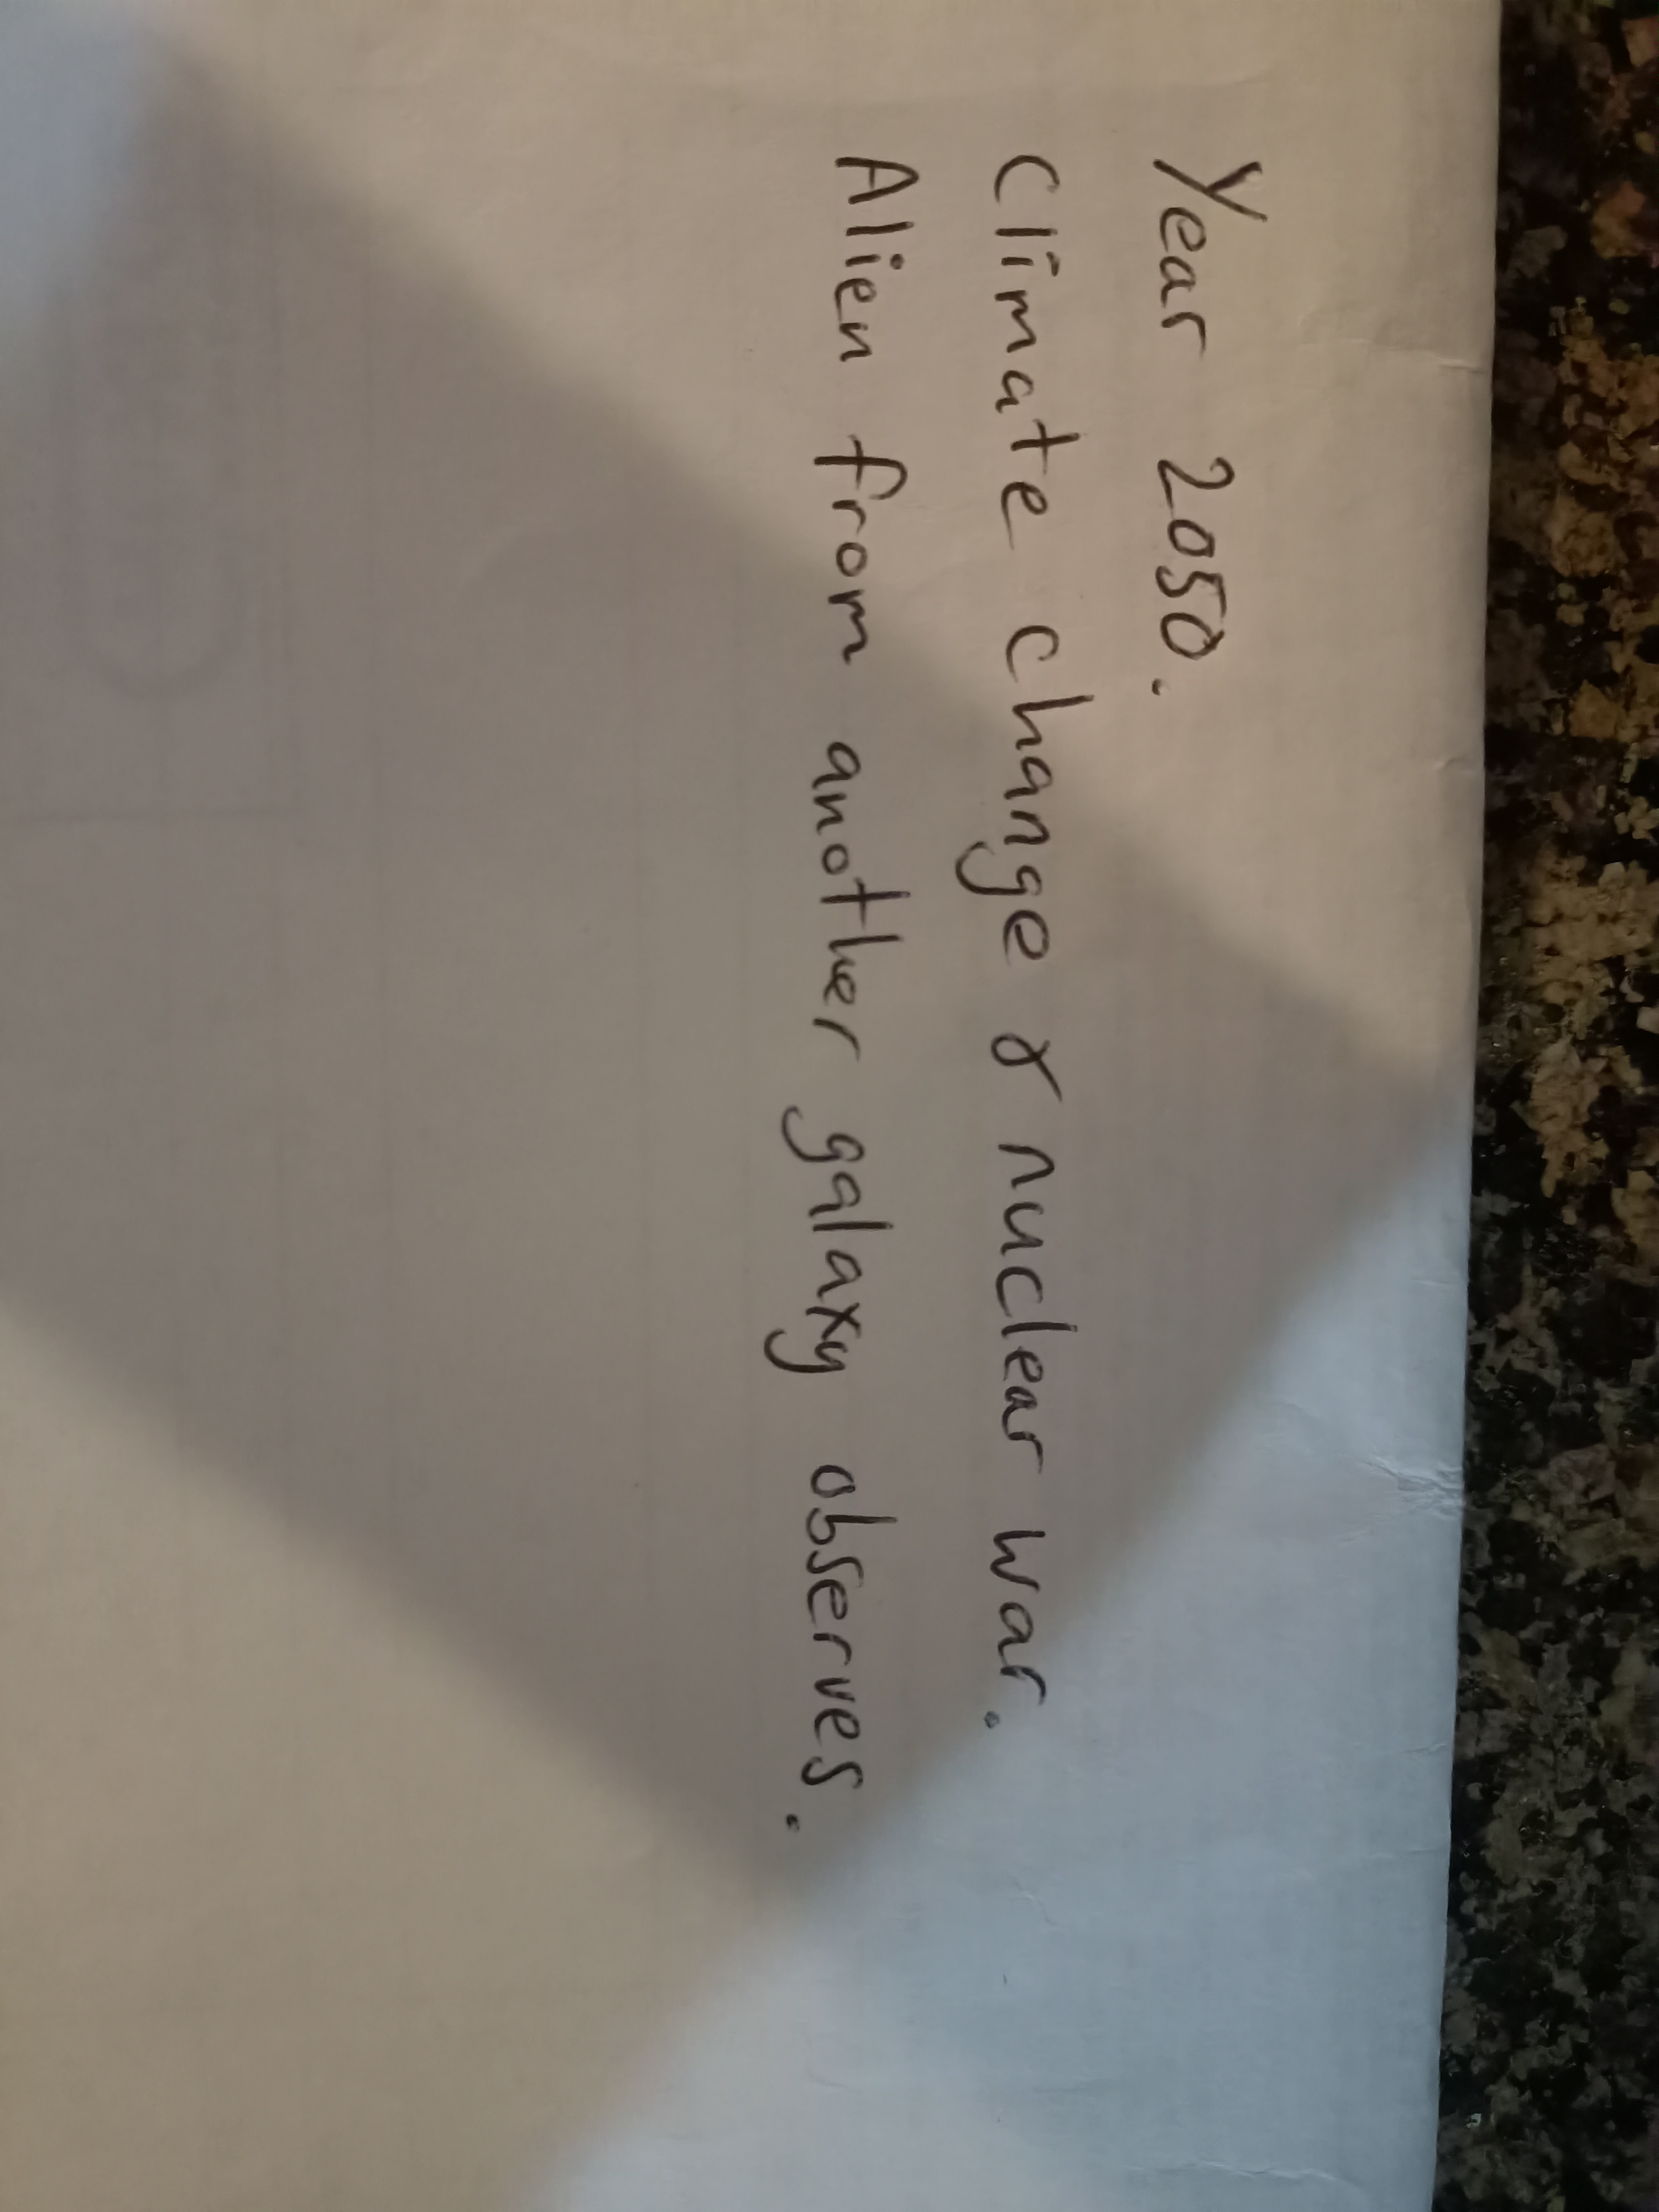 Year 2050.
Climate change & nuclear war.
Alien from another galaxy observes.